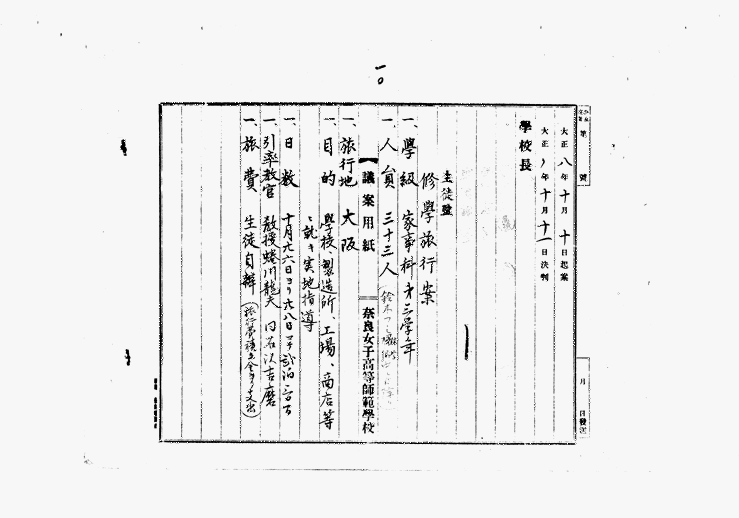 一〇
第 號
月 日發送
大正八年十月十日起案
大正八年十月十一日決判
學校長
生徒監
修學旅行案
一、學級 家事科第三學年
一、人員 三十三人
【議案用紙】 奈良女子高等師範學校
一、旅行地 大阪
一、目的 學校、製造所、工場、商店等
ニ就キ實地指導
一、日數 十月廿六日ヨリ廿八日マテ貳泊三日
一、引率教官 教授蜷川龍夫
一、旅費 生徒自辨(旅行費積立金ヨリ支出)